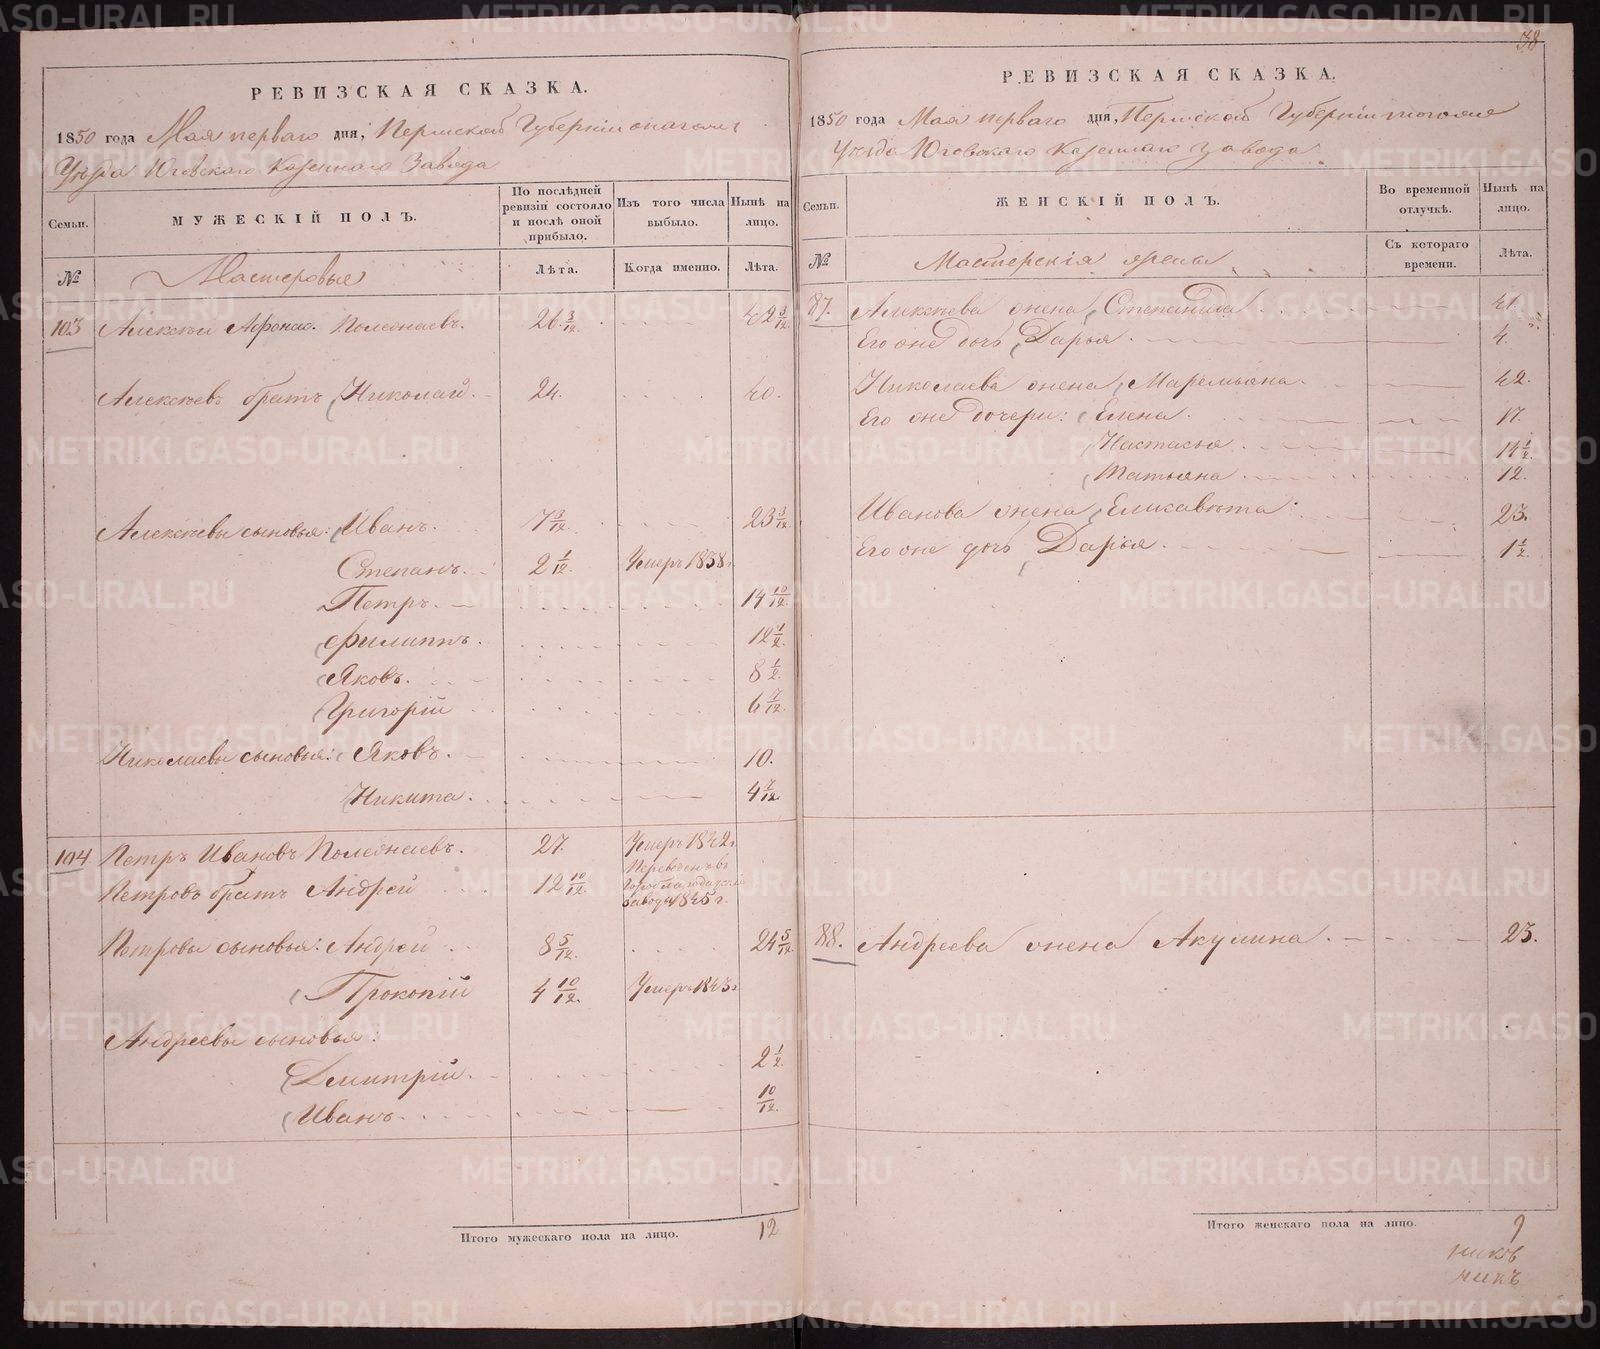 РЕВИЗСКАЯ СКАЗКА.
1850 года Мая перваго дня, Пермской Губерніи
Уѣзда Юговскаго Казеннаго Завода
Семьи.
МУЖЕСКІЙ ПОЛЪ.
По послѣдней ревизіи состояло и послѣ оной прибыло.
Изъ того числа выбыло.
Нынѣ на лицо.
№
Мастеровые
Лѣта.
Когда именно.
Лѣта.
103 Алексѣй Афонас. Полеонаевъ. 26 3/12. 42 3/12.
Алексѣевъ братъ Николай. 24. 40.
Алексѣевы сыновья: Иванъ. 7 3/12. 23 3/12.
Степанъ. 2 1/12. Умеръ 1838 г.
Петръ. 14 10/12.
Филиппъ. 12 1/2.
Яковъ. 8 1/2.
Григорій 6 7/12.
Николаевы сыновья: Яковъ. 10.
Никита. 4 7/12
104 Петръ Ивановъ Полеонаевъ. 27. Умеръ 1842 г.
Петровъ братъ Андрей 12 10/12 Переведенъ въ
заводъ 1845 г.
Петровы сыновья: Андрей 8 5/12. 24 5/12
Прокопій 4 10/12. Умеръ 1843 г
Андреевы сыновья:
Дмитрій. 2 1/2.
Иванъ. 10/12.
Итого мужескаго пола на лицо. 12
38
РЕВИЗСКАЯ СКАЗКА.
1850 года Мая перваго дня, Пермской Губерніи
Уѣзда Юговскаго Казеннаго завода
Семьи.
ЖЕНСКІЙ ПОЛЪ.
Во временной отлучкѣ.
Нынѣ на лицо.
№
Мастерскія
Съ котораго времени.
Лѣта.
87. Алексѣева жена Степанида 41.
Его же дочь Дарья. 4.
Николаева жена Маремьяна. 42.
Его же дочери: Елена. 17.
Настасья 14 1/2.
Татьяна 12.
Иванова жена Елисавѣта 23.
Его же дочь Дарья. 1 1/2.
88. Андреева жена Акулина. 23.
Итого женскаго пола на лицо. 9
METRIKI.GASO-URAL.RU